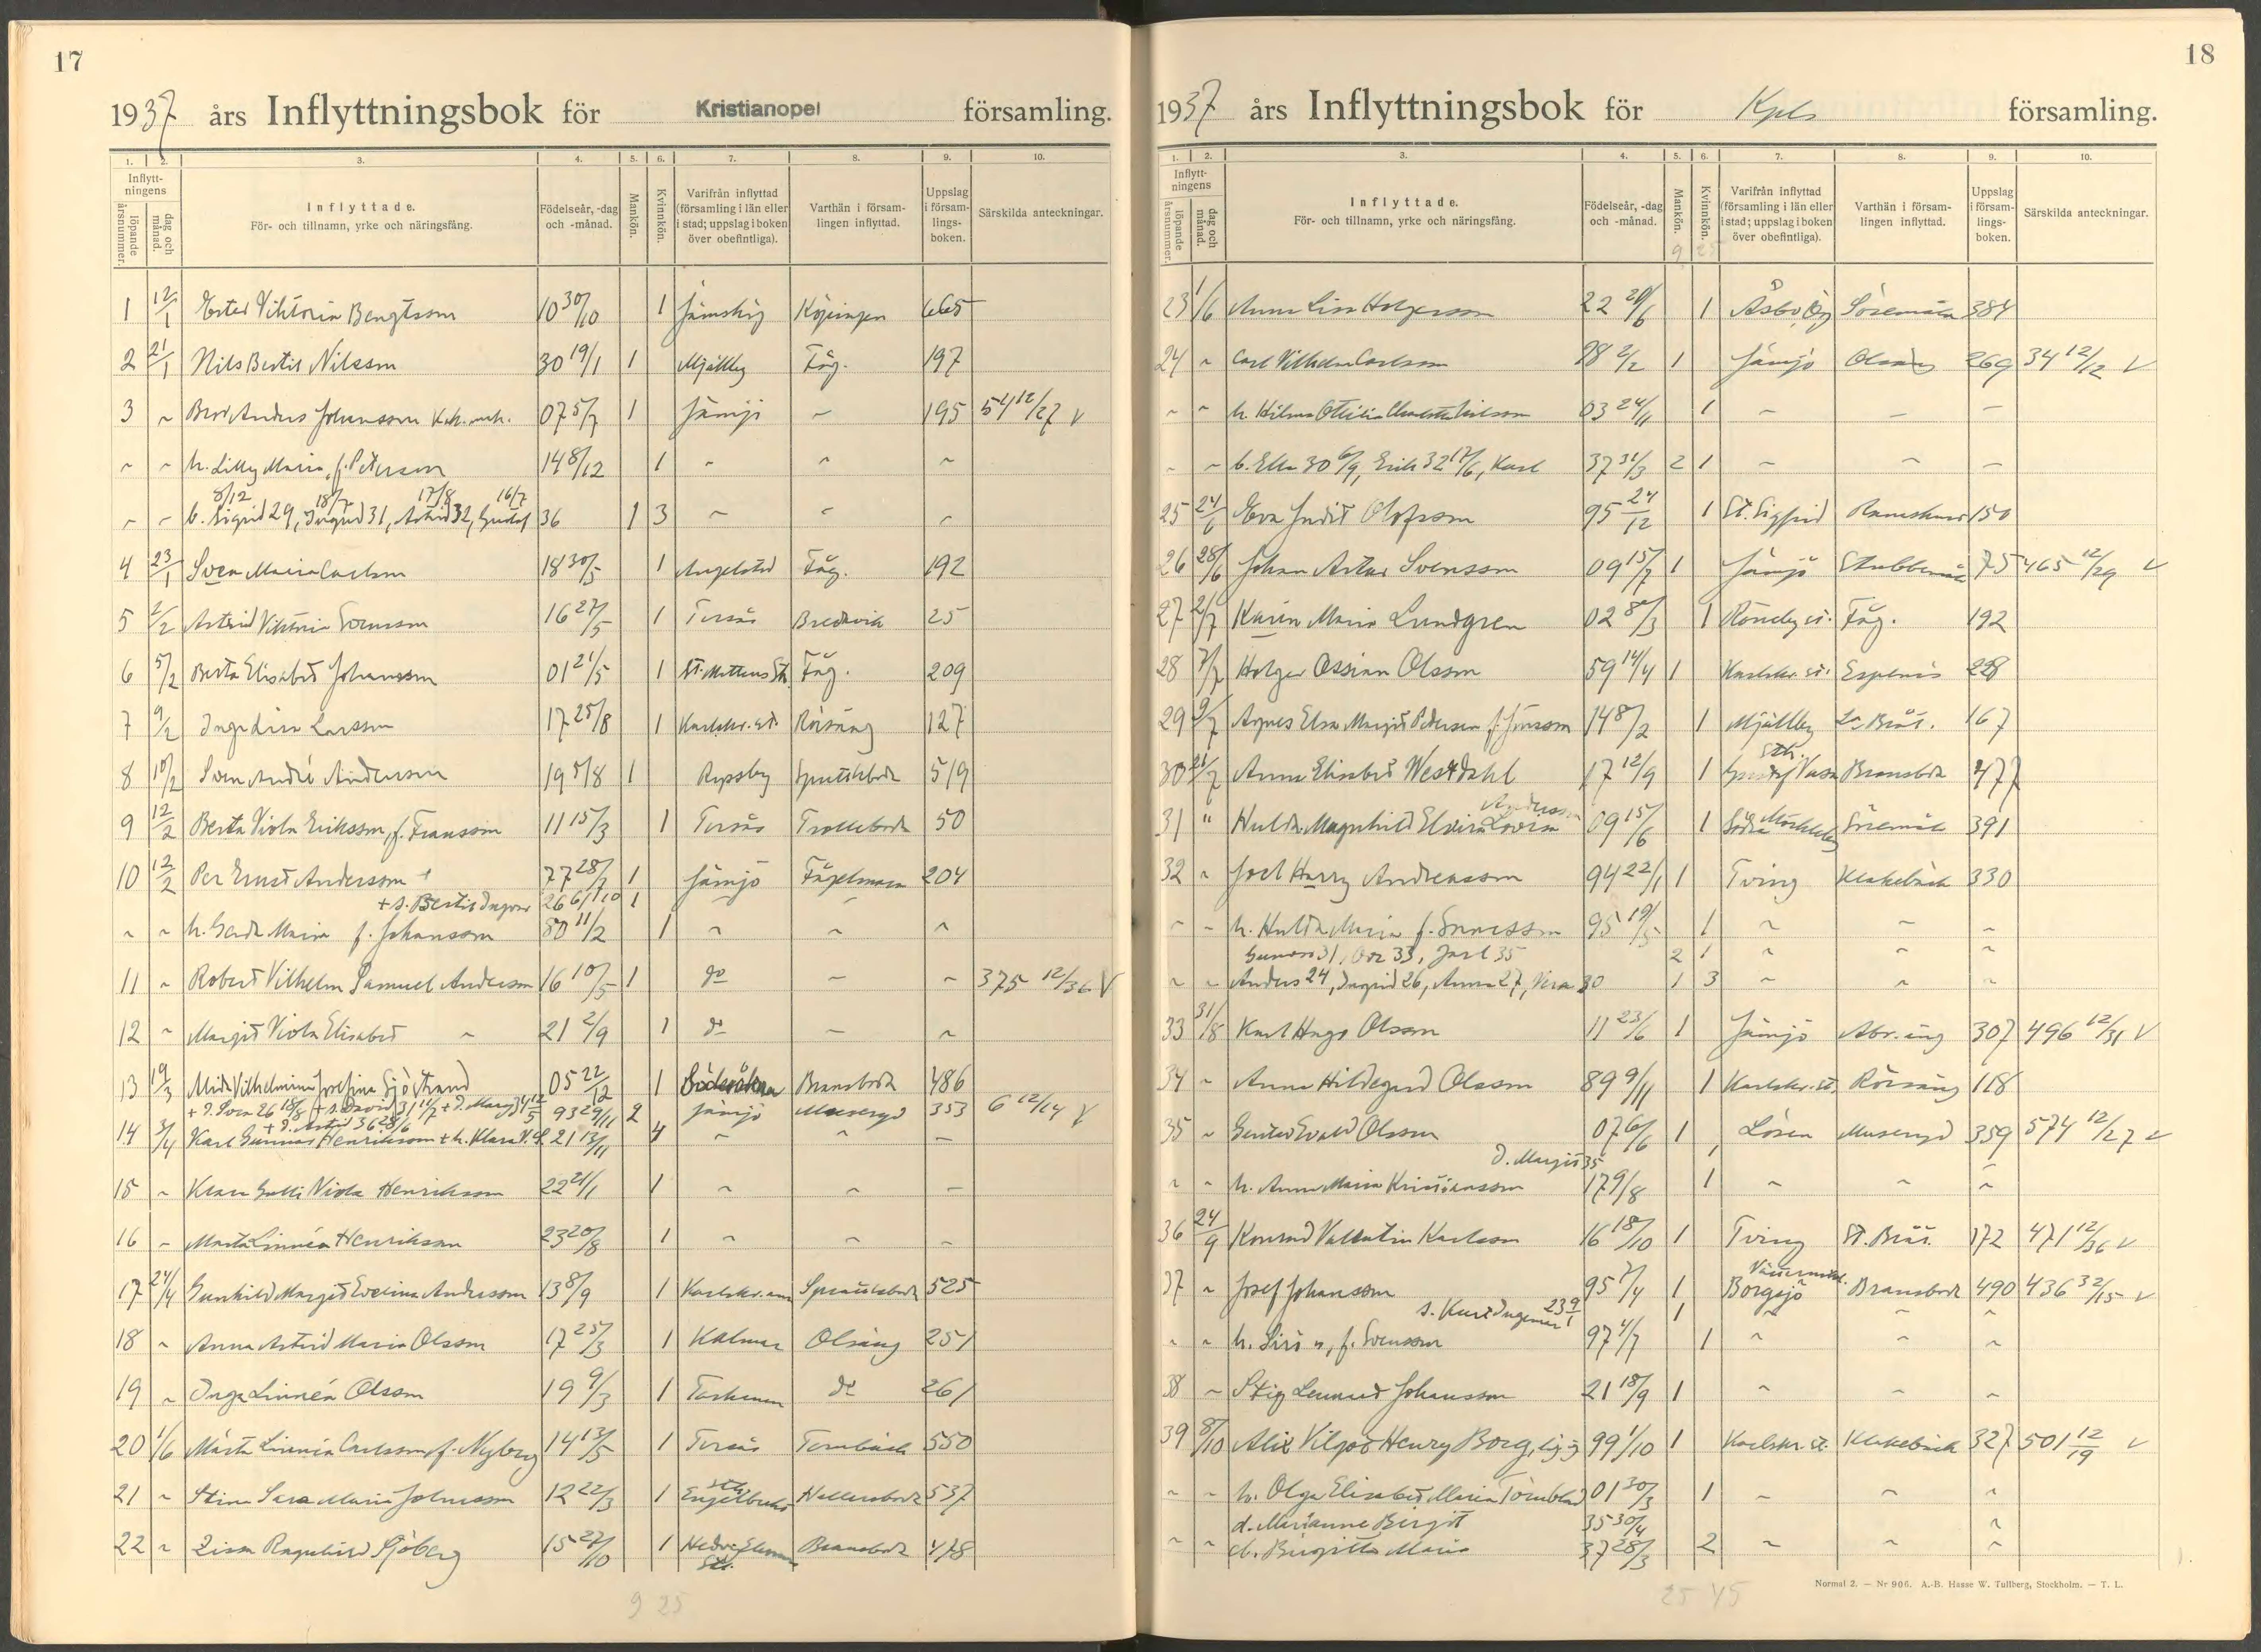 17
1937 års Inflyttningsbok för Kristianopel församling.
1. 2. 3. 4. 5. 6. 7. 8. 9. 10.
Inflytt-
ningens
löpande
årsnummer.
dag och
månad.
Inflyttade.
För- och tillnamn, yrke och näringsfång.
Födelseår, -dag
och -månad.
Mankön.
Kvinnkön.
Varifrån inflyttad
(församling i län eller
i stad; uppslag i boken
över obefintliga).
Varthän i försam-
lingen inflyttad.
Uppslag
i försam-
lings-
boken.
Särskilda anteckningar.
1 12/1 Ester Viktoria Bengtsson 10 30/10 1 Jämshög Köpingen 665
2 21/1 Nils Bertil Nilsson 30 19/1 1 Mjällby Fäg. 197
3 ~ Anders Johansson 07 5/7 1 Jämjö ~ 195 54 12/27 V
~ ~ h. Lilly Maria, f. Peterson 14 8/12 1 ~ ~ ~
8/12 18/7 17/8 16/7
~ ~ b. Sigrid 29, Ingrid 31, Astrid 32, Gustaf 36 1 3 ~ ~ ~
4 23/1 Svea Maria Carlson 18 30/5 1 Angelstad Fäg. 192
5 2/2 Astrid Viktoria 16 27/5 1 Torsås Bredavik 25
6 5/2 Berta Elisabet Johansson 01 21/5 1 Fäg. 209
7 9/2 Inga Lisa Larsson 17 25/8 1 Karlskr. st. Rörsäng 127
8 10/2 Sven André Andersson 19 5/8 1 Ryssby 519
9 12/2 Berta Viola Eriksson, f. Fransson 11 15/3 1 Torsås Trolleboda 50
10 12/2 Per Ernst Andersson + 77 28/7 1 Jämjö Fågelmara 204
+ s. Bertil Ingvar 26 6/10 1 ~ ~
~ ~ h. Gerda Maria f. Johansson 80 11/2 1 ~ ~ ~
11 ~ Robert Vilhelm Samuel Andersson 16 10/5 1 do ~ ~ 375 12/36 V
12 ~ Margit Viola Elisabet ~ 21 2/9 1 do ~ ~
13 19/3 Vilhelmina Josefina Sjöstrand 05 22/12 1 Söderåkra Bransboda 486
+ d. Svea 26 18/8 + s. David 31 11/7 + d. 93 29/11 2 Jämjö 353 6 12/14 V
+ d. Astrid 36 28/6
14 3/4 Karl Gunnar Henriksson + h. Klara 21 13/11 4 ~ ~ ~
15 ~ Klara Viola Henriksson 22 21/1 1 ~ ~ ~
16 ~ Marta Linnéa Henriksson 23 20/8 1 ~ ~ ~
17 24/4 Gunhild Margit Evelina Andersson 13 8/9 1 Karlskr. 525
18 ~ Anna Astrid Maria Olsson 17 25/3 1 Kalmar Olsäng 251
19 ~ Inga Linnéa Olsson 19 9/3 1 do 261
20 1/6 Märta Linnéa Carlsson f. Nyberg 14 13/5 1 Torsås Tornbäck 550
21 ~ Stina Sara Maria Johnsson 12 22/3 1 Sth. Engelbrekt 537
22 ~ Ragnhild Sjöberg 15 27/10 1 Hedv. Eleonora Sth. Bransboda 478
9 25
18
1937 års Inflyttningsbok för Kpls församling.
1. 2. 3. 4. 5. 6. 7. 8. 9. 10.
Inflytt-
ningens
löpande
årsnummer.
dag och
månad.
Inflyttade.
För- och tillnamn, yrke och näringsfång.
Födelseår, -dag
och -månad.
Mankön.
Kvinnkön.
Varifrån inflyttad
(församling i län eller
i stad; uppslag i boken
över obefintliga).
Varthän i försam-
lingen inflyttad.
Uppslag
i försam-
lings-
boken.
Särskilda anteckningar.
9 25
23 1/6 Anna Lisa Holgersson 22 20/6 1 Åsbo Ög Söremåla 384
24 ~ Carl Vilhelm Carlsson 98 2/2 1 Jämjö Olsäng 269 34 12/12 V
~ ~ h. Hilma Otilia 03 24/11 1 ~ ~ ~
~ ~ b. Ella 30 6/9, Erik 32 17/6, Karl 37 31/3 2 1 ~ ~ ~
25 24/6 Eva Judit Olofsson 95 24/12 1 St. Sigfrid 150
26 28/6 Johan Artur Svensson 09 15/7 1 Jämjö 75 465 12/29 V
27 2/7 Karin Maria Lundgren 02 8/3 1 Fäg. 192
28 7/7 Holger Ossian Olsson 59 14/4 1 Karlskr. st. Espenäs 228
29 9/7 Agnes Elsa Margit Peterson f. Jönsson 14 8/2 1 Mjällby 167
30 21/7 Anna Elisabet Westdahl 17 12/9 1 Sth. Gustaf Vasa Bransboda 477
Andersson
31 " Hulda Magnhild Elvira Lovisa 09 15/6 1 Södra Möckleby Söremåla 391
32 ~ Joel Harry Andreasson 94 22/1 1 Tving Klakebäck 330
~ ~ h. Hulda Maria f. 95 19/5 1 ~ ~ ~
31, 33, 35 2 1 ~ ~ ~
~ ~ Anders 24, Ingrid 26, Anna 27, Vera 30 1 3 ~ ~ ~
33 31/8 Karl Hugo Olsson 11 23/6 1 Jämjö Abr. äng 307 496 12/31 V
34 ~ Anna Hildegard Olsson 89 9/11 1 Karlskr. st. Rörsäng 118
35 ~ Evald Olsson 07 6/6 1 Lösen 359 574 12/27 V
d. Margit 35 1
~ ~ h. Anna Maria Kristiansson 17 9/8 1 ~ ~ ~
36 24/9 Konrad Valentin Karlsson 16 18/10 1 Tving St. Brös. 172 471 12/36 V
37 ~ Josef Johansson 95 7/4 1 Borgsjö Bransboda 490 436 32/15 V
s. Kurt Ingemar 23 9/1 1 ~ ~ ~
~ ~ h. Siri ", f. Svensson 97 4/7 1 ~ ~ ~
38 ~ Stig Lennart Johansson 21 18/9 1 ~ ~ ~
39 8/10 Alix Henry Borg, 99 1/10 1 Karlskr. st. Klakebäck 327 501 12/19 V
~ ~ h. Olga Elisabet Maria Törnblad 01 30/3 1 ~ ~ ~
d. Marianne Birgit 35 30/4 ~
~ ~ d. Birgitta Maria 37 28/3 2 ~ ~ ~
25 45
Normal 2. — Nr 906. A.-B. Hasse W. Tullberg, Stockholm. — T. L.